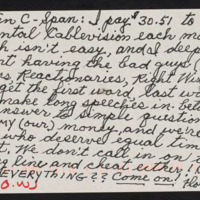 en C-Span: I pay $30.51 to
ntal Cablevision each m
h isn't easy, and I deep
t having the bad guys (
s, Reactionaries, Right Wi
get the first word, last wo
make long speeches in bet
nswer to simple question
MY (our) money, and we're
who deserve equal time
t. We don't call in on
g line and cheat either! (
EVERYTHING?? Come on! Flo
O.W.